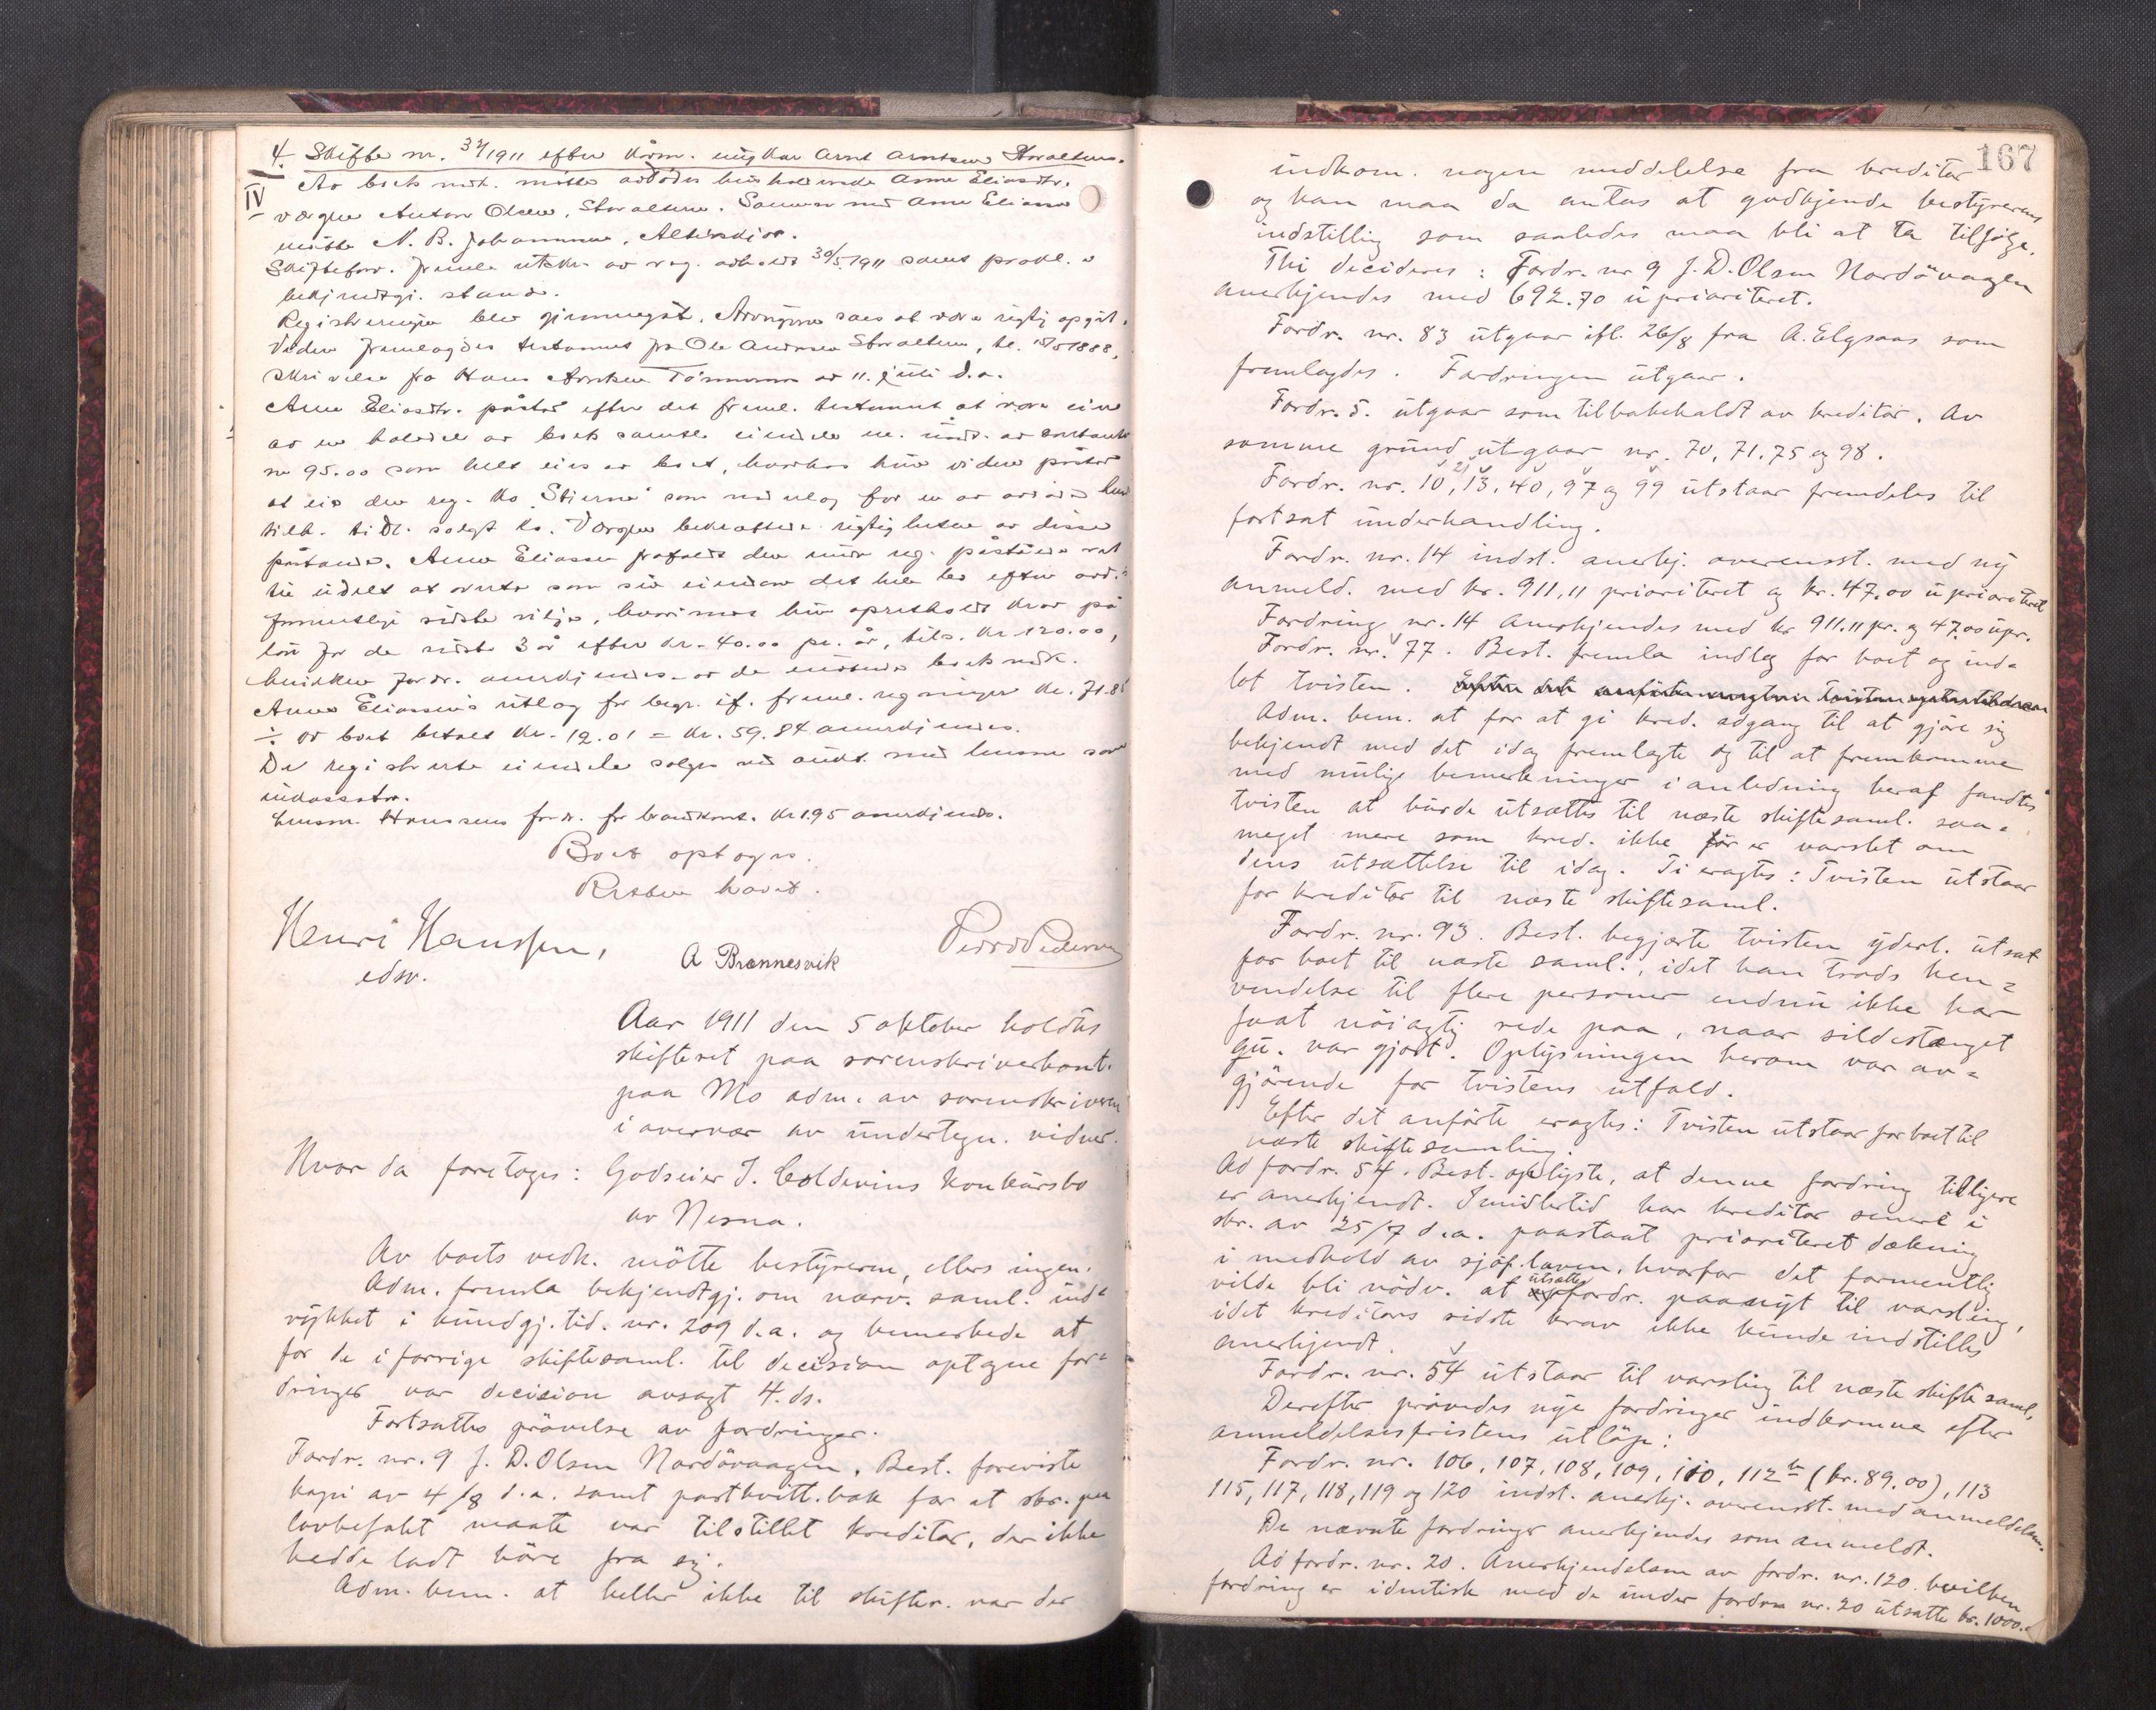 4. Skifte nr. 34/1911 efter Kårm. ungkar Arnt Arntsen Storalteren.
IV
Av boets vedk. møtte avdødes husholderske Anne Eliasdtr.
værgen Anton Olsen, Storalteren. Sammen med Anne Eliasen
møtte N. B. Johannesen, Alterskjær.
Skifteforv. fremla utskr. av reg. avholdt 30/5 1911 samt prokl. s
bekjendtgj. stand.
Registreringen blev gjennemgåt. Arvingene saes at være rigtig opgit.
Videre fremlagdes testament fra Ole Andersen Storalteren, dt. 15/5 1888,
skrivelse fra Hans Arntsen Tømmern av 11. juli d.a.
Anne Eliasdtr. påstod efter det freml. testament at være eier
av en halvdel av boets samtlige eiendele m. undt. av kontante
kr 95.00 som helt eies av boet, hvorhos hun videre påstod
at eie den reg. ko "Stjerne" som vederlag for en av avdøde hende
tilh. tidl. solgt ko. Værgen bekræftede rigtigheten av disse
påstande. Anne Eliassen frafaldt den under reg. påståede ret
til udelt at overta som sin eiendom det hele bo efter avd.s
formentlige sidste vilje, hvorimot hun opretholdt krav på
løn for de sidste 3 år efter kr. 40.00 pr. år, tils. kr 120.00,
hvilken fordr. anerkjendes av de møtende boets vedk.
Anne Eliassens utlæg for begr. if. freml. regninger kr. 71.85
÷ av boet betalt kr. 12.01 = kr. 59.84 anerkjendes.
De registrerte eiendele sælges ved aukt. med lensm. som
inkassator.
Lensm. Hanssens fordr. for brandkont. kr 1.95 anerkjendes.
Boet optoges.
Retten hævet.
Henri Hanssen,
edsv.
A Brennesvik
Pedro Pedersen
Aar 1911 den 5 oktober holdtes
skifteret paa sorenskriverkont.
paa Mo adm. av sorenskriveren
i overvær av undertegn. vidner.
Hvor da foretoges: Godseier I. Coldevins konkursbo
av Nesna.
Av boets vedk. møtte bestyreren, ellers ingen.
Adm. fremla bekjendtgj. om nærv. saml. ind=
rykket i kundgj. tid. nr. 209 d.a. og bemerkede at
for de i forrige skiftesaml. til decision optagne for=
dringer var decision avsagt 4. ds.
Fortsattes prøvelse av fordringer.
Fordr. nr. 9 J. D. Olsen Nordøvaagen. Best. foreviste
kopi av 4/8 d.a. samt postkvitt.bok for at skr. paa
lovbefalt maate var tilstillet kreditor, der ikke
hadde ladt høre fra sig.
Adm. bem. at heller ikke til skifter. var der
167
indkom. nogen meddelelse fra kreditor
og han maa da antas at godkjende bestyrerens
indstilling som saaledes maa bli at ta tilfølge.
Thi decideres: Fordr. nr 9 J. D. Olsen Nordövaagen
anerkjendes med 692.70 uprioriteret.
Fordr. nr. 83 utgaar ifl. 26/8 fra A. Elgsaas som
fremlagdes. Fordringen utgaar.
Fordr. 5. utgaar som tilbakeholdt av kreditor. Av
samme grund utgaar nr. 70, 71, 75 og 98.
Fordr. nr. 10, 13, 40, 97 og 99 utstaar fremdeles til
fortsat underhandling.
Fordr. nr. 14 indst. anerkj. overensst. med ny
anmeld. med kr. 911,11 prioriteret og kr. 47,00 uprioriteret
Fordring nr. 14 anerkjendes med kr 911.11 pr. og 47.00 upr.
Fordr. nr. 77. Best. fremla indlæg for boet og ind=
lot tvisten.
Adm. bem. at for at gi kred. adgang til at gjøre sig
bekjendt med det idag fremlagte og til at fremkomme
med mulige bemerkninger i anledning heraf fandtes
tvisten at burde utsættes til næste skiftesaml. saa=
meget mere som kred. ikke før er varslet om
dens utsættelse til idag. Ti eragtes: Tvisten utstaar
for kreditor til næste skiftesaml.
Fordr. nr. 93. Best. begjærte tvisten yderl. utsat
for boet til næste saml., idet han trods hen=
vendelse til flere personer endnu ikke har
faat nöiagtig rede paa, naar sildestænget
qu. var gjort. Oplysningen herom var av=
gjörende for tvistens utfald.
Efter det anförte eragtes: Tvisten utstaar for boet til
næste skiftesamling.
Ad fordr. 54. Best. oplyste, at denne fordring tidligere
er anerkjendt. Imidlertid har kreditor senere i
skr. av 25/7 d.a. paastaat prioriteret dækning
i medhold av sjøf.loven, hvorfor det formentlig
vilde bli nødv. at utsætte fordr. paanyt til varsling,
idet kreditors sidste krav ikke kunde indstilles
anerkjendt.
Fordr. nr. 54 utstaar til varsling til næste skiftesaml.
Derefter prøvedes nye fordringer indkomne efter
anmeldelsesfristens utløp:
Fordr. nr. 106, 107, 108, 109, 110, 112 b (kr. 89,00), 113
115, 117, 118, 119 og 120 indst. anerkj. overensst. med anmeldelsen.
De nævnte fordringer anerkjendes som anmeldt.
Ad fordr. nr. 20. Anerkjendelsen av fordr. nr. 120 hvilken
fordring er identisk med de under fordr. nr. 20 utsatte kr. 1000.-